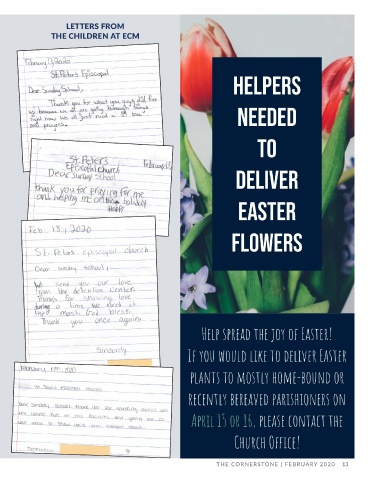 LETTERS FROM
THE CHILDREN AT ECM
February 13, 2020
St. Peter's Episcopal
Dear Sunday School,
Thank you for what you guys did for
us because we all are going through things
right now. We all just need a lil love
and prayers.
St. Peter's
Episcopal Church
February 13
Dear Sunday School
thank you for praying for me
and helping me on the holiday
Feb. 13, 2020
St. Peters episcopal church
Dear Sunday School,
We send you our love
from the detention center.
Thanks for showing love
a time we need it
the most. God bless.
Thank you once again.
Sincerely
February 13th, 2020
St Peters Episcopal Church
Dear Sunday School thank you for
HELPERS
NEEDED
TO
DELIVER
EASTER
FLOWERS
Help spread the joy of Easter!
If you would like to deliver Easter
plants to mostly home-bound or
recently bereaved parishioners on
April 15 or 16, please contact the
Church Office!
THE CORNERSTONE | FEBRUARY 2020 13